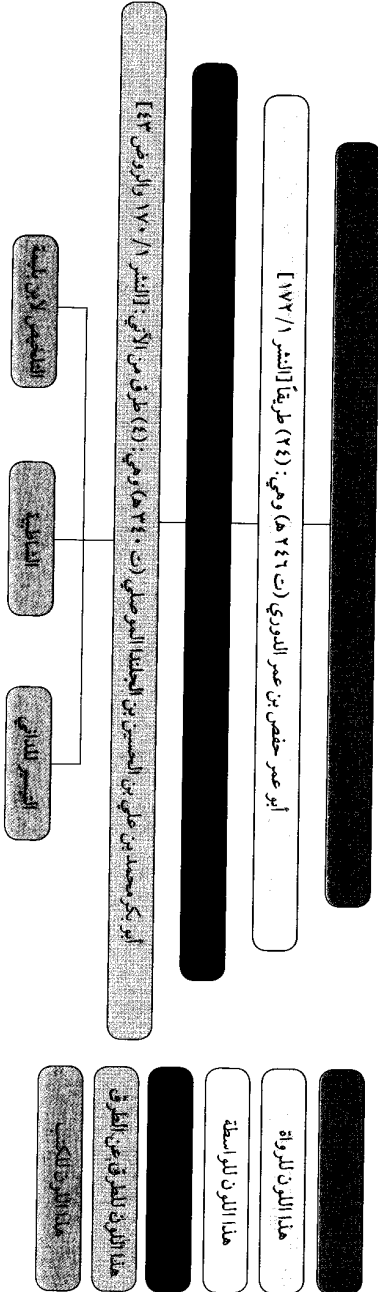 أبو عمر حفص بن عمر الدوري (ت ٢٤٦ هـ) وهي: (٢٤) طريقاً [النشر ١/ ١٧٢]
أبو بكر محمد بن علي بن الحسين بن الجلندا الموصلي (ت ٣٤٠ هـ) وهي: (٤) طرق من الآتي: [النشر ١/ ١٧٠ والروض ٤٣]
التلخيص لابن بليمة
الشاطبية
التيسير للداني
هذا اللون للرواة
هذا اللون للواسطة
هذا اللون للطرق عن الطرق
هذا اللون للكتب